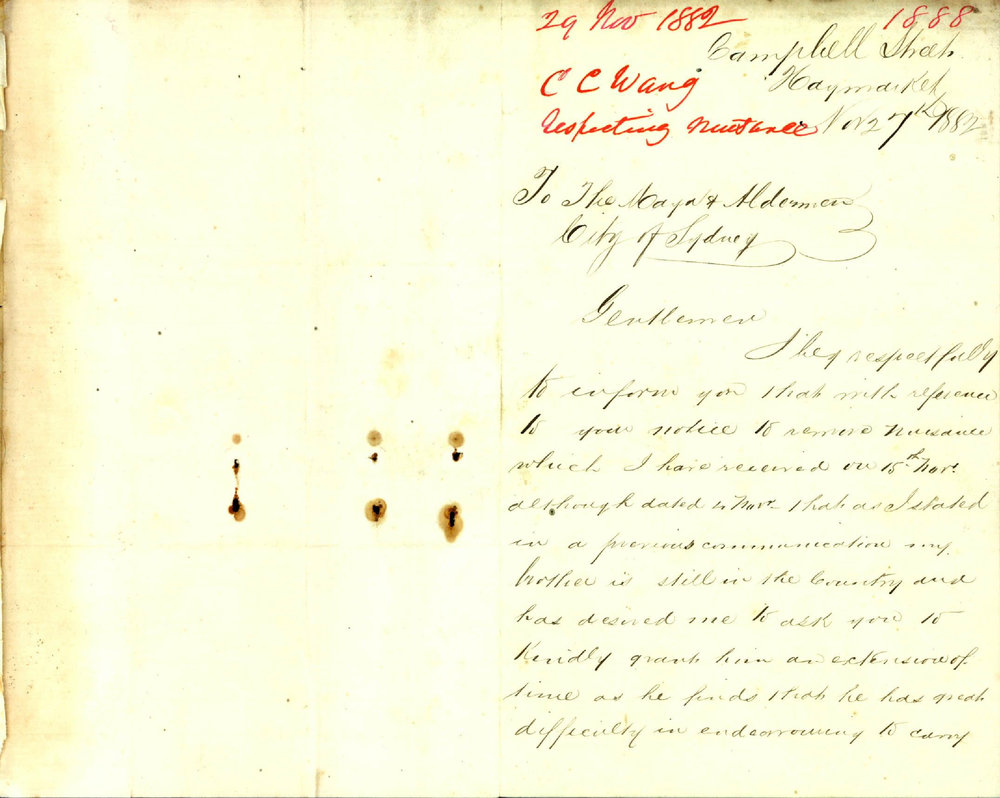 29 Nov 1882 1888
Campbell Street
C C Wang
Haymarket
respecting nuisance
Nov 27th 1882
To The Mayor & Aldermen
City of Sydney
Gentlemen
I beg respectfully
to inform you that with reference
to your notice to remove nuisance
which I have received on 15th Novr
although dated Novr that as I stated
in a previous communication my
brother is still in the Country and
has desired me to ask you to
Kindly grant him an extension of
time as he finds that he has great
difficulty in endeavouring to carry